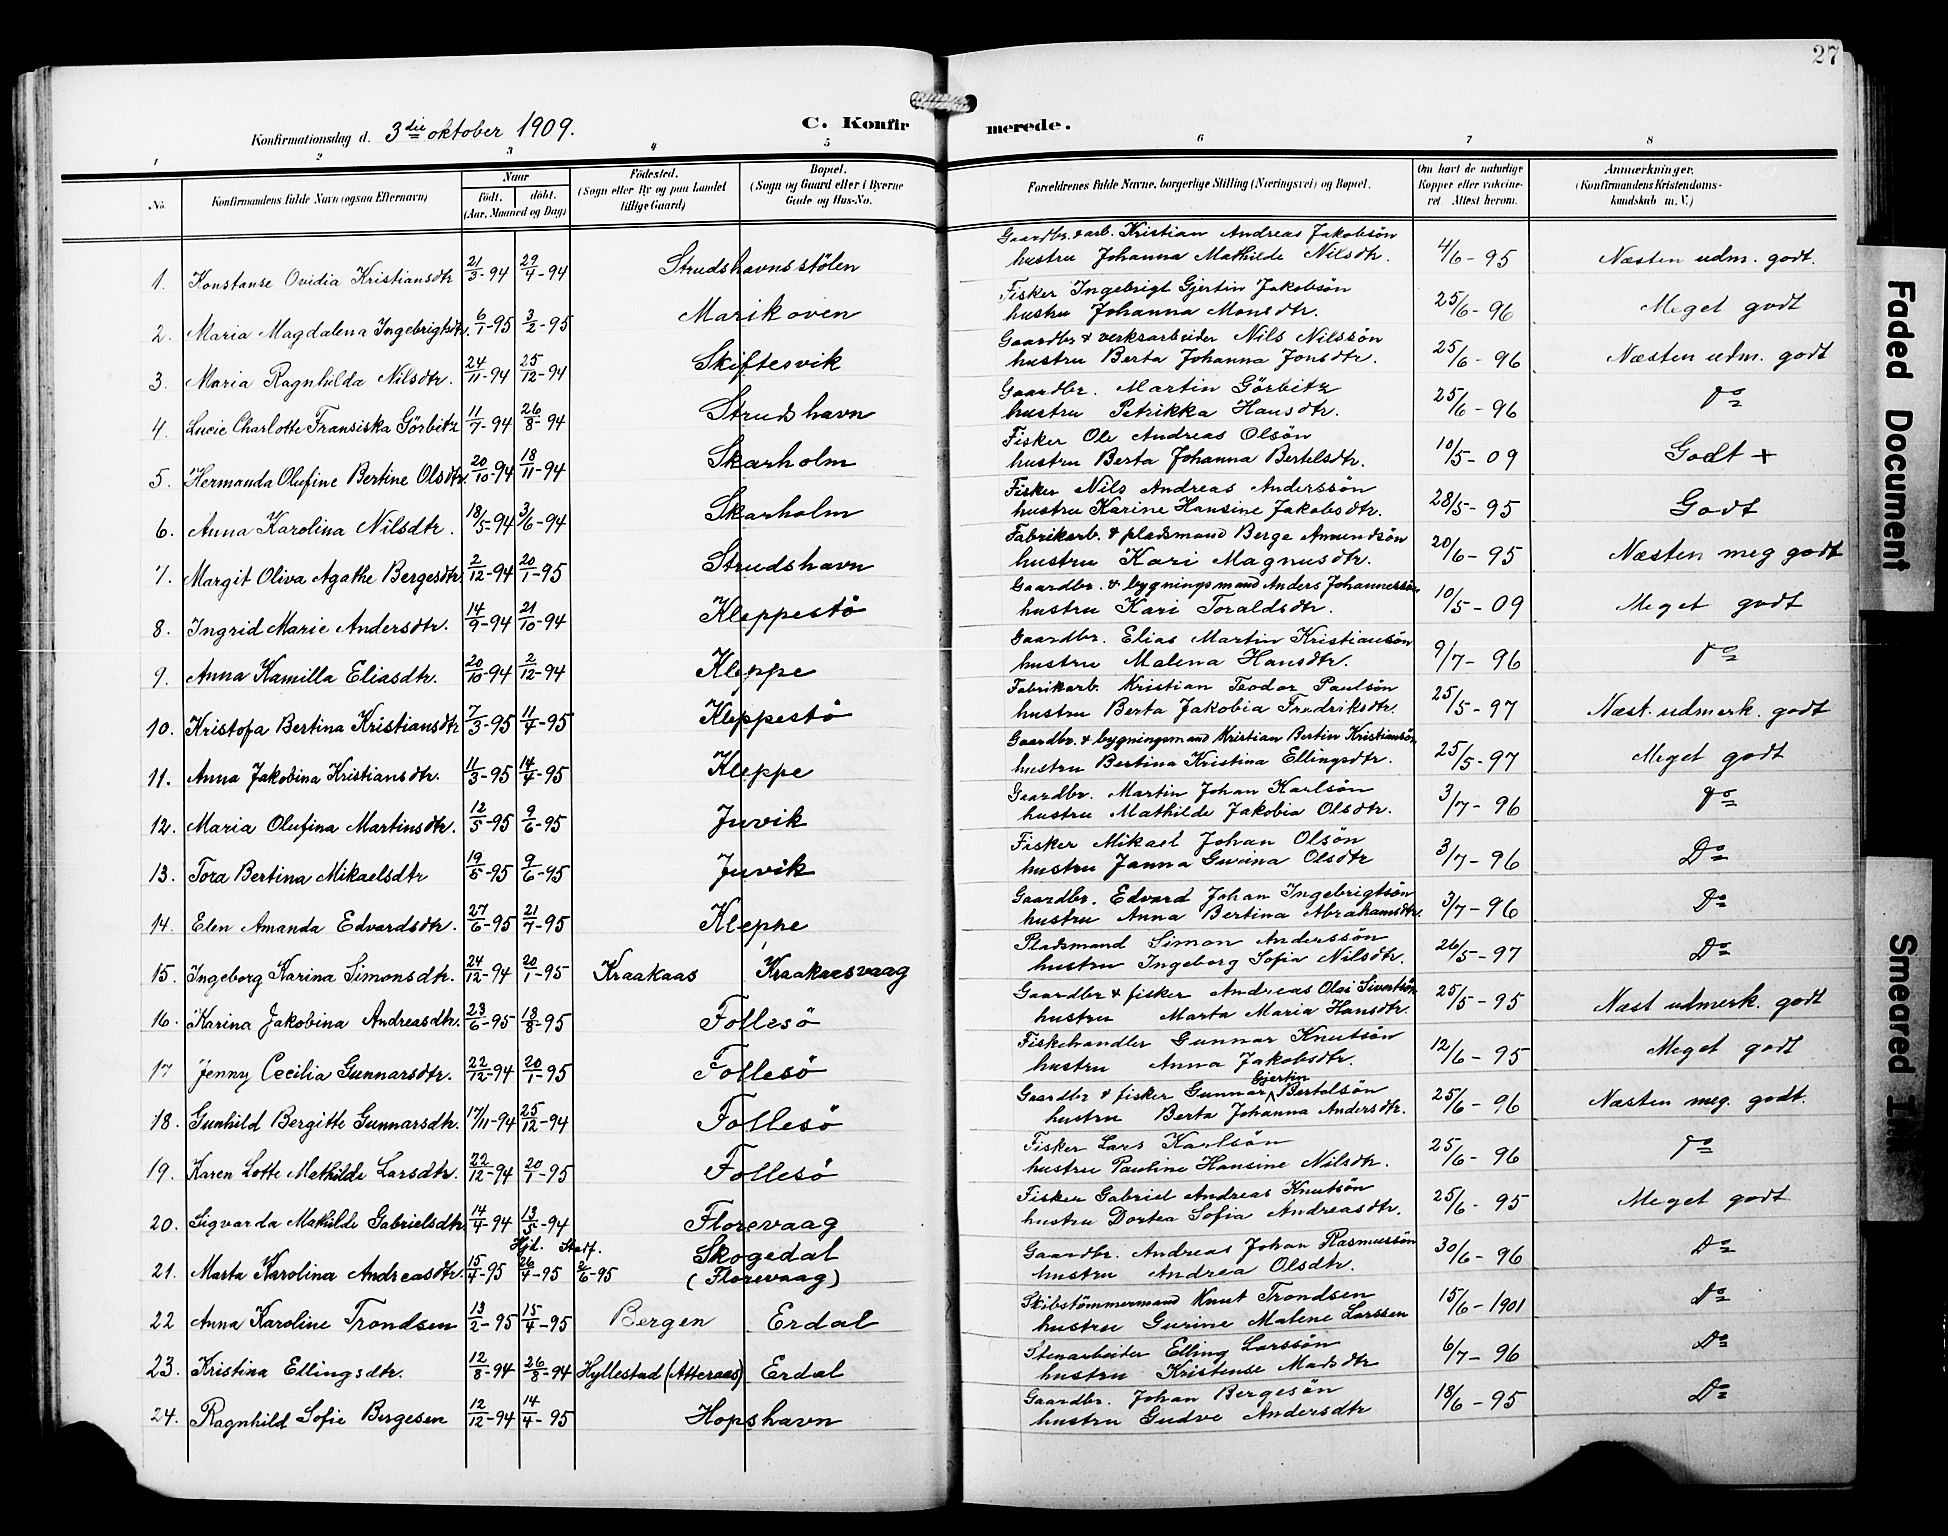 27
Konfirmationsdag d. 3die oktober 1909.
C. Konfirmerede.
1 2 3 4 5 6 7 8
No. Konfirmandens fulde Navn (ogsaa Efternavn) Naar født. døbt. (Aar, Maaned og Dag) Fødested. (Sogn eller By og paa Landet tillige Gaard) Bopæl. (Sogn og Gaard eller i Byerne Gade og Hus-No. Forældrenes fulde Navne, borgerlige Stilling (Næringsvei) og Bopæl. Om havt de naturlige Kopper eller vaccineret. Attest herom. Anmærkninger. (Konfirmandens Kristendomskundskab m. V.)
1. Konstanse Ovidia Kristiansdtr 21/3-94 29/4-94 Strudshavnsstölen Gaardbr. & arb. Kristian Andreas Jakobsön
hustru Johanna Mathilde Nilsdtr. 4/6-95 Næsten udm. godt.
2. Maria Magdalena Ingebrigtsdtr. 6/1-95 3/2-95 Marikoven Fisker Ingebrigt Gjertin Jakobsön
hustru Johanna Monsdtr. 25/6-96 Meget godt
3. Maria Ragnhilda Nilsdtr. 24/11-94 25/12-94 Skiftesvik Gaardbr & verksarbeider Nils Nilssön
hustru Berta Johanna Jonsdtr. 25/6-96 Næsten udm. godt
4. Lucie Charlotte Fransiska Görbitz 11/7-94 26/8-94 Strudshavn Gaardbr. Martin Görbitz
hustru Petrikka Hansdtr. 25/6-96 Do
5. Hermanda Olufine Bertine Olsdtr. 20/10-94 18/11-94 Skarholm Fisker Ole Andreas Olsön
hustru Berta Johanna Bertelsdtr. 10/5-09 Godt +
6. Anna Karolina Nilsdtr. 18/5-94 3/6-94 Skarholm Fisker Nils Andreas Anderssön
hustru Karine Hansine Jakobsdtr. 28/5-95 Godt
7. Margit Oliva Agathe Bergesdtr. 2/12-94 20/1-95 Strudshavn Fabrikarb. & pladsmand Berge Amundsön
hustru Kari Magnusdtr. 20/6-95 Næsten meg godt
8. Ingrid Marie Andersdtr. 14/9-94 21/10-94 Kleppestö Gaardbr. & bygningsmand Anders Johannessön
hustru Kari Toraldsdtr. 10/5-09 Meget godt
9. Anna Kamilla Eliasdtr. 20/10-94 2/12-94 Kleppe Gaardbr. Elias Martin Kristiansön
hustru Malena Hansdtr. 9/7-96 Do
10. Kristofa Bertina Kristiansdtr 7/3-95 11/4-95 Kleppestö Fabrikarb. Kristian Teodor Paulsön
hustru Berta Jakobia Fredriksdtr. 25/5-97 Næst. udmerk. godt
11. Anna Jakobina Kristiansdtr. 11/3-95 14/4-95 Kleppe Gaardbr. & bygningsmand Kristian Bertin Kristiansön
hustru Bertina Kristina Ellingsdtr. 25/5-97 Meget godt
12. Maria Olufina Martinsdtr. 12/5-95 9/6-95 Juvik Gaardbr. Martin Johan Karlsön
hustru Mathilde Jakobia Olsdtr. 3/7-96 Do
13. Tora Bertina Mikaelsdtr 19/5-95 9/6-95 Juvik Fisker Mikael Johan Olsön
hustru Janna Gurina Olsdtr 3/7-96 Do
14. Elen Amanda Edvardsdtr. 27/6-95 21/7-95 Kleppe Gaardbr. Edvard Johan Ingebrigtsön
hustru Anna Bertina Abrahamsdtr. 3/7-96 Do
15. Ingeborg Karina Simonsdtr. 24/12-94 20/1-95 Kraakaas Kraakaasvaag Pladsmand Simon Anderssön
hustru Ingeborg Sofia Nilsdtr. 26/5-97 Do
16. Karina Jakobina Andreasdtr. 23/6-95 18/8-95 Follesö Gaardbr & fisker Andreas Olai Sivertsön
hustru Marta Maria Hansdtr. 25/5-95 Næst udmerk. godt
17 Jenny Cecilia Gunnarsdtr. 22/12-94 20/1-95 Follesö Fiskehandler Gunnar Knutsön
hustru Anna Jakobsdtr. 12/6-95 Meget godt
18. Gunhild Bergitte Gunnarsdtr. 17/11-94 25/12-94 Follesö Gaardbr & fisker Gunnar Gjertin Bertelsön
hustru Berta Johanna Andersdtr. 25/6-96 Næsten meg. godt.
19. Karen Lotte Mathilde Larsdtr. 22/12-94 20/1-95 Follesö Fisker Lars Karlsön
hustru Pauline Hansine Nilsdtr. 25/6-96 Do
20. Sigvarda Mathilde Gabrielsdtr. 14/4-94 13/5-94 Florevaag Fisker Gabriel Andreas Knutsön
hustru Dortea Sofia Andreasdtr. 25/6-95 Meget godt
21. Marta Karolina Andreasdtr. 15/4-95 Hjd. 26/4-95 Stadf. 2/6-95 Skogedal (Florevaag) Gaardbr. Andreas Johan Rasmussön
hustru Andrea Olsdtr. 30/6-96 Do
22 Anna Karoline Trondsen 13/2-95 15/4-95 Bergen Erdal Skibstömmermand Knut Trondsen
hustru Gurine Malene Larssen 15/6-1901 Do
23. Kristina Ellingsdtr. 12/8-94 26/8-94 Hyllestad (Atteraas) Erdal Stenarbeider Elling Larssön
hustru Kristense Madsdtr 6/7-96 Do
24. Ragnhild Sofie Bergesen 12/12-94 14/4-95 Hopshavn Gaardbr. Johan Bergesön
hustru Gudve Andersdtr 18/6-95 Do
Faded Document
Smeared Ink